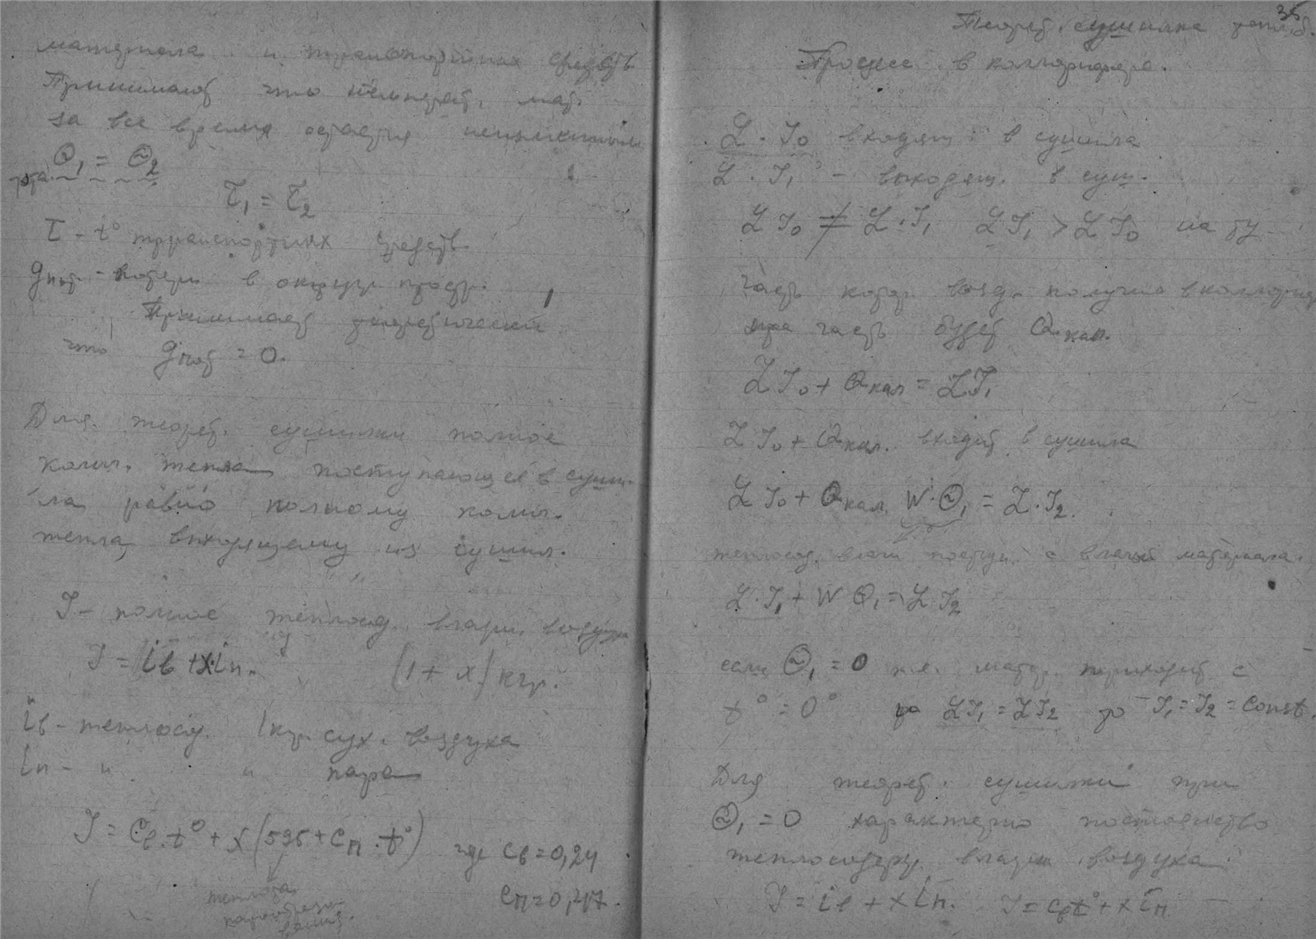 материала и транспортных средств
Принимают что температ. мат.
за все время остается неизменным
Θ₁ = Θ₂
τ₁ = τ₂
τ - t° транспортных средств
qпот - потери в окруж. простр.
Принимают теоретически
что qпот = 0.
Для теорет. сушилки полное
колич. тепла поступающее в суши-
ла равно полному колич.
тепла, выходящему из сушил.
J - полное теплосод. влажн. воздуха
J = iв + x·iп. (1 + x) кгр.
iв - теплосод. 1 кгр. сух. воздуха
iп - " " пара
J = Cв·t° + x(595 + Cп·t°) где Cв = 0,24
теплота
парообразо-
вания.
Cп = 0,47.
35
Теорет. сушилка
Процесс в каллорифере.
L·J₀ входящ. в сушила
L·J₁ - выходящ. в суш.
LJ₀ ≠ L·J₁ LJ₁ > LJ₀ на ту
часть котор. возд. получил в каллориф.
эта часть будет Qкал.
LJ₀ + Qкал = LJ₁
LJ₀ + Qкал. входит в сушила
LJ₀ + Qкал. W·Θ₁ = L·J₂.
теплосод. влаги поступ. с влагой материала.
L·J₁ + WΘ₁ = LJ₂
если Θ₁ = 0 т.е. матер. приходит с
t° = 0° то LJ₁ = LJ₂ то J₁ = J₂ = Const
Для теорет. сушилки при
Θ₁ = 0 характерно постоянство
теплосодерж. влажн. воздуха
J = iв + xiп. J = Cвt° + xiп